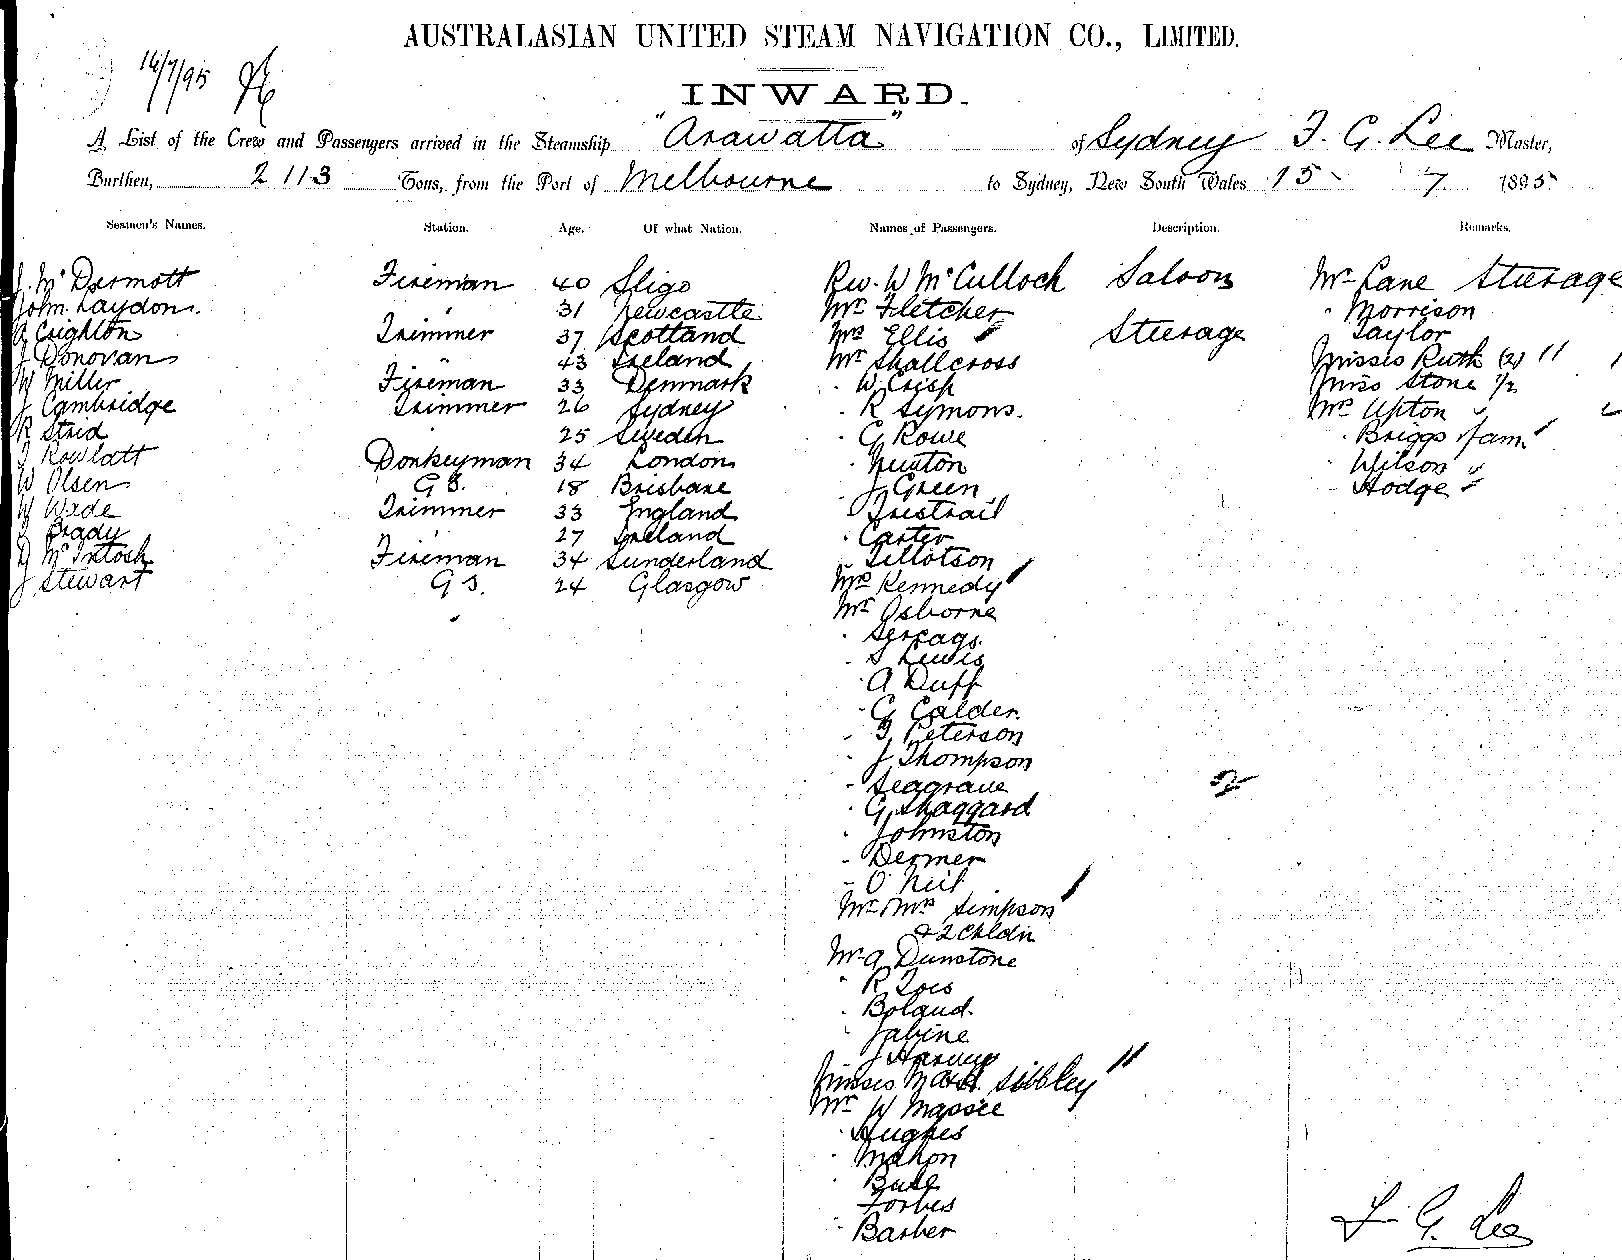 AUSTRALASIAN UNITED STEAM NAVIGATION CO., LIMITED.
16/7/95
INWARD.
A List of the Crew and Passengers arrived in the Steamship "Arawatta" of Sydney F. G. Lee Master,
Burthen, 2113 Tons, from the Port of Melbourne to Sydney, New South Wales 15 - 7 1895
Seamen's Names. Station. Age. Of what Nation. Names of Passengers. Description. Remarks.
J. McDermott Fireman 40 Sligo Rev. W McCulloch Saloon Mr Lane Steerage
John Laydon. " 31 Newcastle Mr Fletcher " Morrison
A Crighton Trimmer 37 Scotland Mrs Ellis Steerage Taylor
J Donovan " 43 Ireland Mr Shallcross Misses Ruth (2) "
W Miller Fireman 33 Denmark " W Crisp Miss Stone 1/2
J Cambridge Trimmer 26 Sydney " R Symons. Mrs Upton
R Strid " 25 Sweden " G Rowe " Briggs
Rowlatt Donkeyman 34 London " Newton " Wilson
W Olsen G S. 18 Brisbane " J Green " Hodge
W Wade Trimmer 33 England " Trestrail
Brady " 27 Ireland " Carter
D McIntosh Fireman 34 Sunderland " Tillotson
J Stewart G S. 24 Glasgow Mrs Kennedy
Mr Osborne
"
" S Lewis
" A Duff
" G Calder.
" Peterson
" J Thompson
" Seagrave
" G Shaggard
" Johnston
" Dermer
" O'Neil
Mr & Mrs Simpson
& 2 Chldn
Mr A Dunstone
" R
" Boland.
" Jabine
" J Harvey
Misses M & H Sibley
Mr W Massie
" Hughes
" Mahon
"
" Forbes
" Barber
F. G. Lee